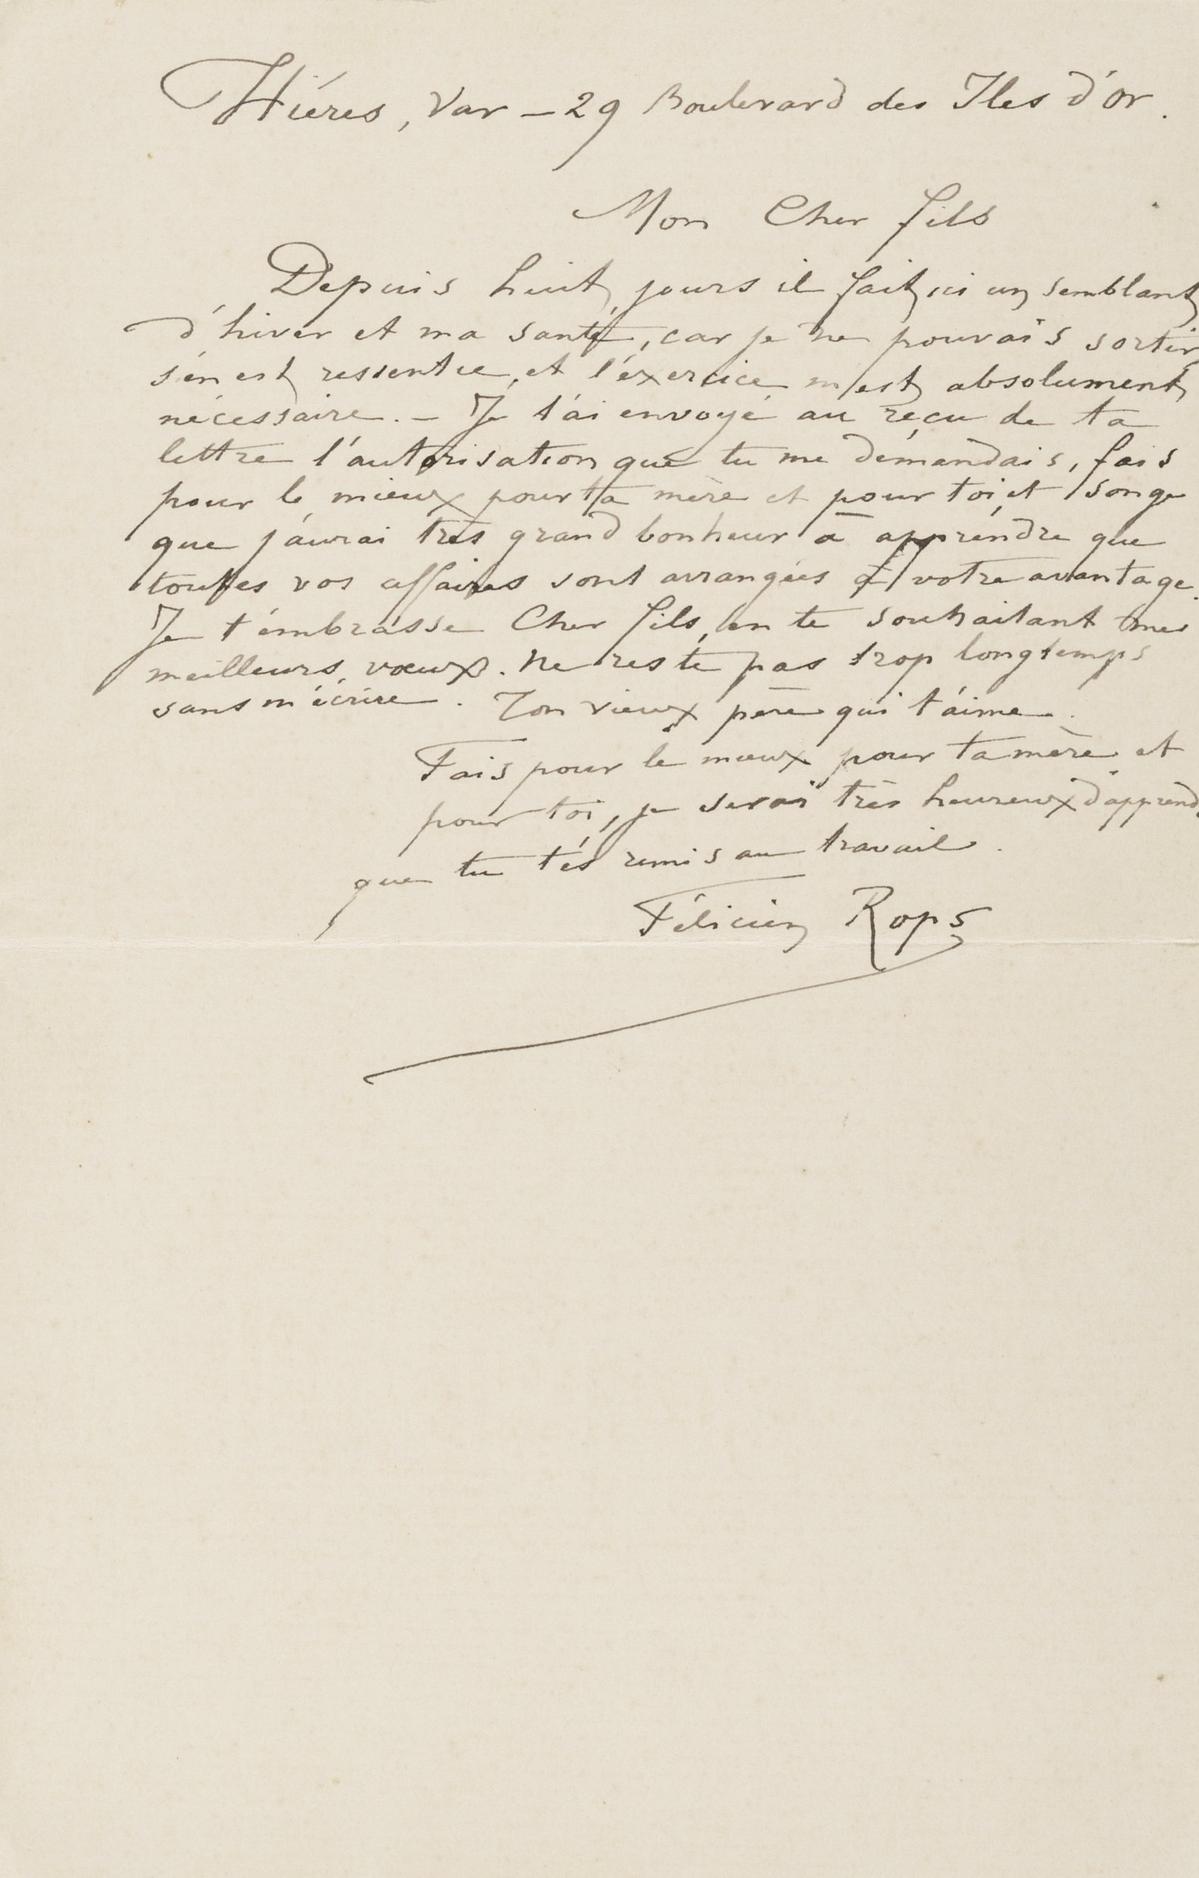 Hiéres, Var – 29 Boulevard des Iles d'or.
Mon Cher fils
Depuis huit jours il fait ici un semblant
d'hiver et ma santé, car je ne pouvais sortir
s'en est ressentie, et l'éxercice m'est absolument
nécessaire. – Je t'ai envoyé au reçu de ta
lettre l'autorisation que tu me demandais, fais
pour le mieux pour ta mère et pour toi, et songe
que j'aurai très grand bonheur à apprendre que
toutes vos affaires sont arrangées à votre avantage.
Je t'embrasse Cher fils, en te souhaitant mes
meilleurs vœux. Ne reste pas trop longtemps
sans m'écrire. Ton vieux père qui t'aime.
Fais pour le mieux pour ta mère et
pour toi, je serai très heureux d'apprend
que tu t'és remis au travail.
Félicien Rops